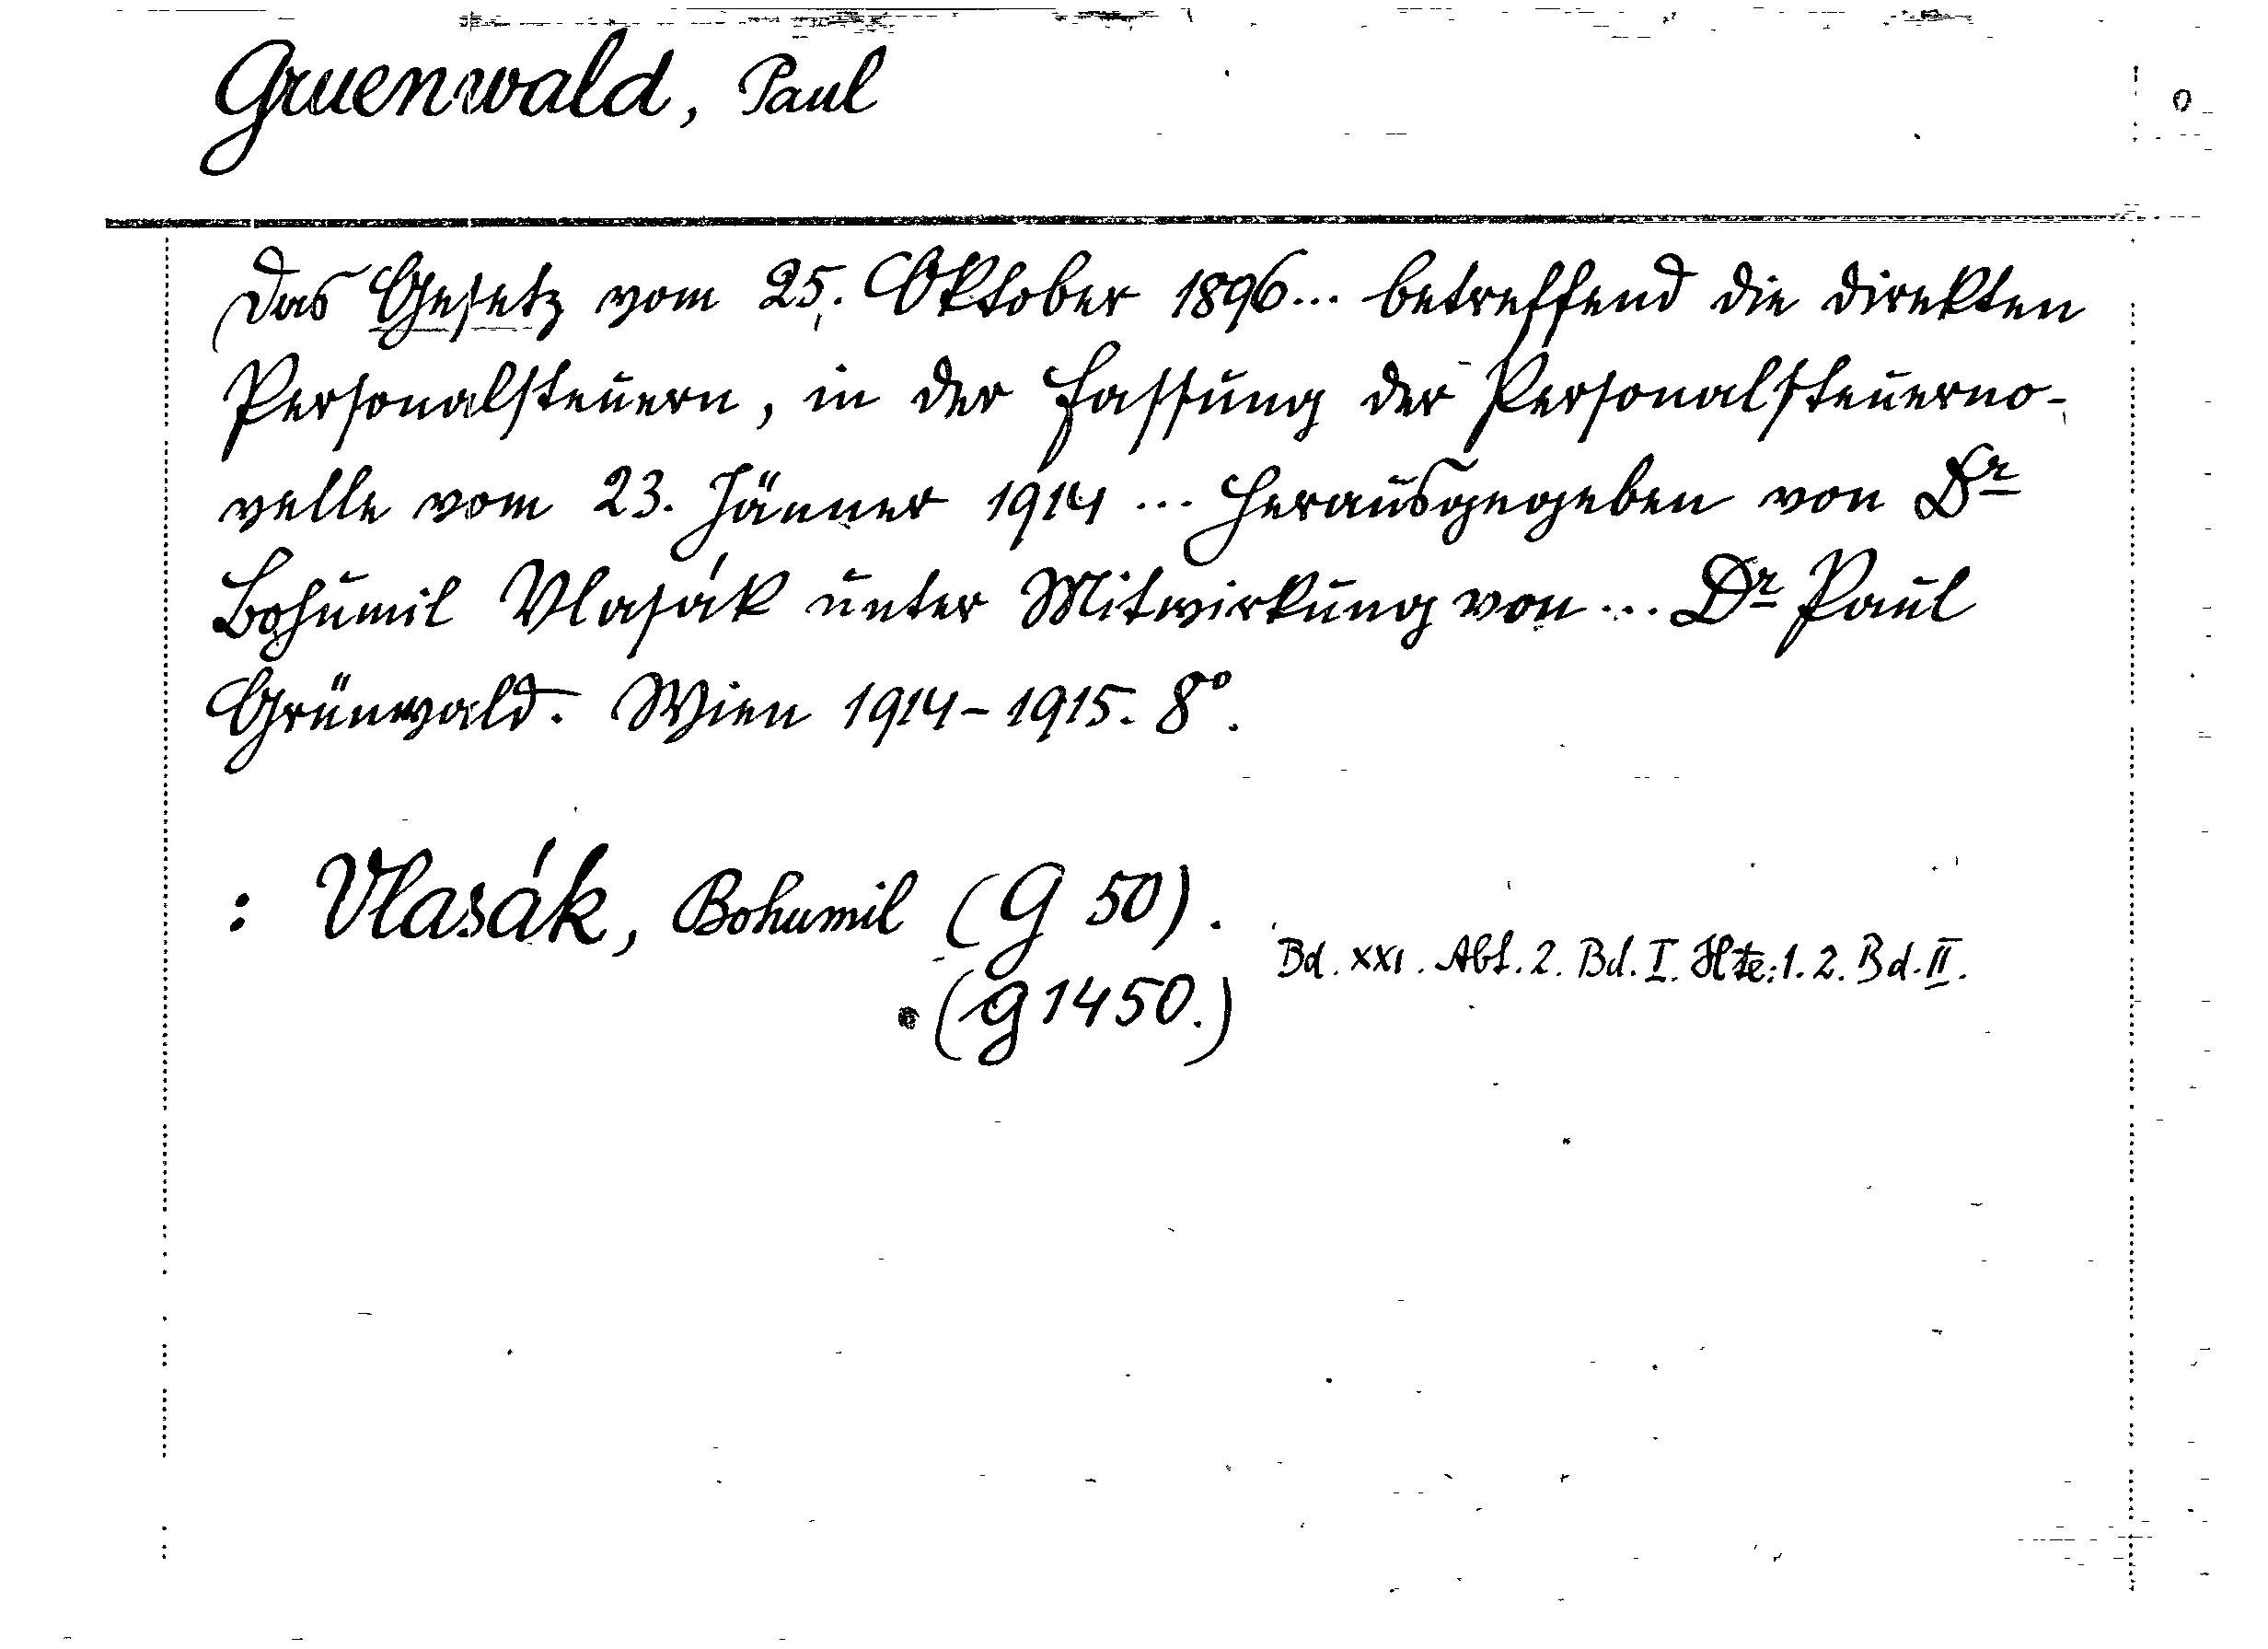 Gruenwald, Paul
Das Gesetz vom 25. Oktober 1896... betreffend die direkten
Personalsteuern, in der Fassung der Personalsteuerno-
velle vom 23. Jänner 1914 ... Herausgegeben von Dr
Bohumil Vlasák unter Mitwirkung von ... Dr Paul
Grünwald. Wien 1914-1915. 8°.
: Vlasák, Bohumil (G 50).
Bd. XXI. Abt. 2. Bd. I. Hte: 1. 2. Bd. II.
(G 1450.)